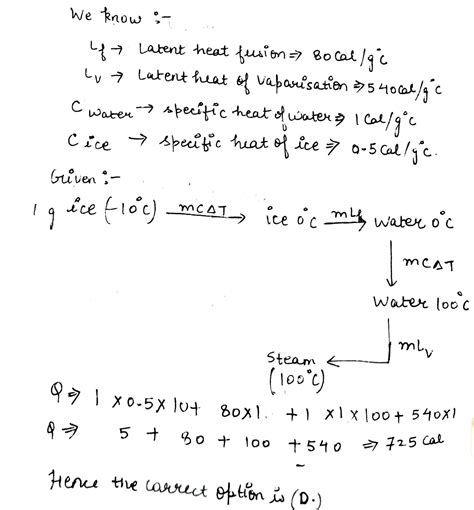 We know :-
Lf → Latent heat fusion ⇒ 80 Cal/g°C
Lv → Latent heat of vaparisation ⇒ 540 cal/g°C
C water → specific heat of water ⇒ 1 Cal/g°C
C ice → specific heat of ice ⇒ 0.5 Cal/g°C.
Given :-
1 g ice (-10°C) mCΔT → ice 0°C mLf → Water 0°C
↓ mCΔT
Water 100°C
↓ mLv
Steam ←
(100°C)
Q ⇒ 1 × 0.5 × 10 + 80×1. + 1 × 1 × 100 + 540×1
Q ⇒ 5 + 80 + 100 + 540 ⇒ 725 Cal
Hence the correct option is (D.)